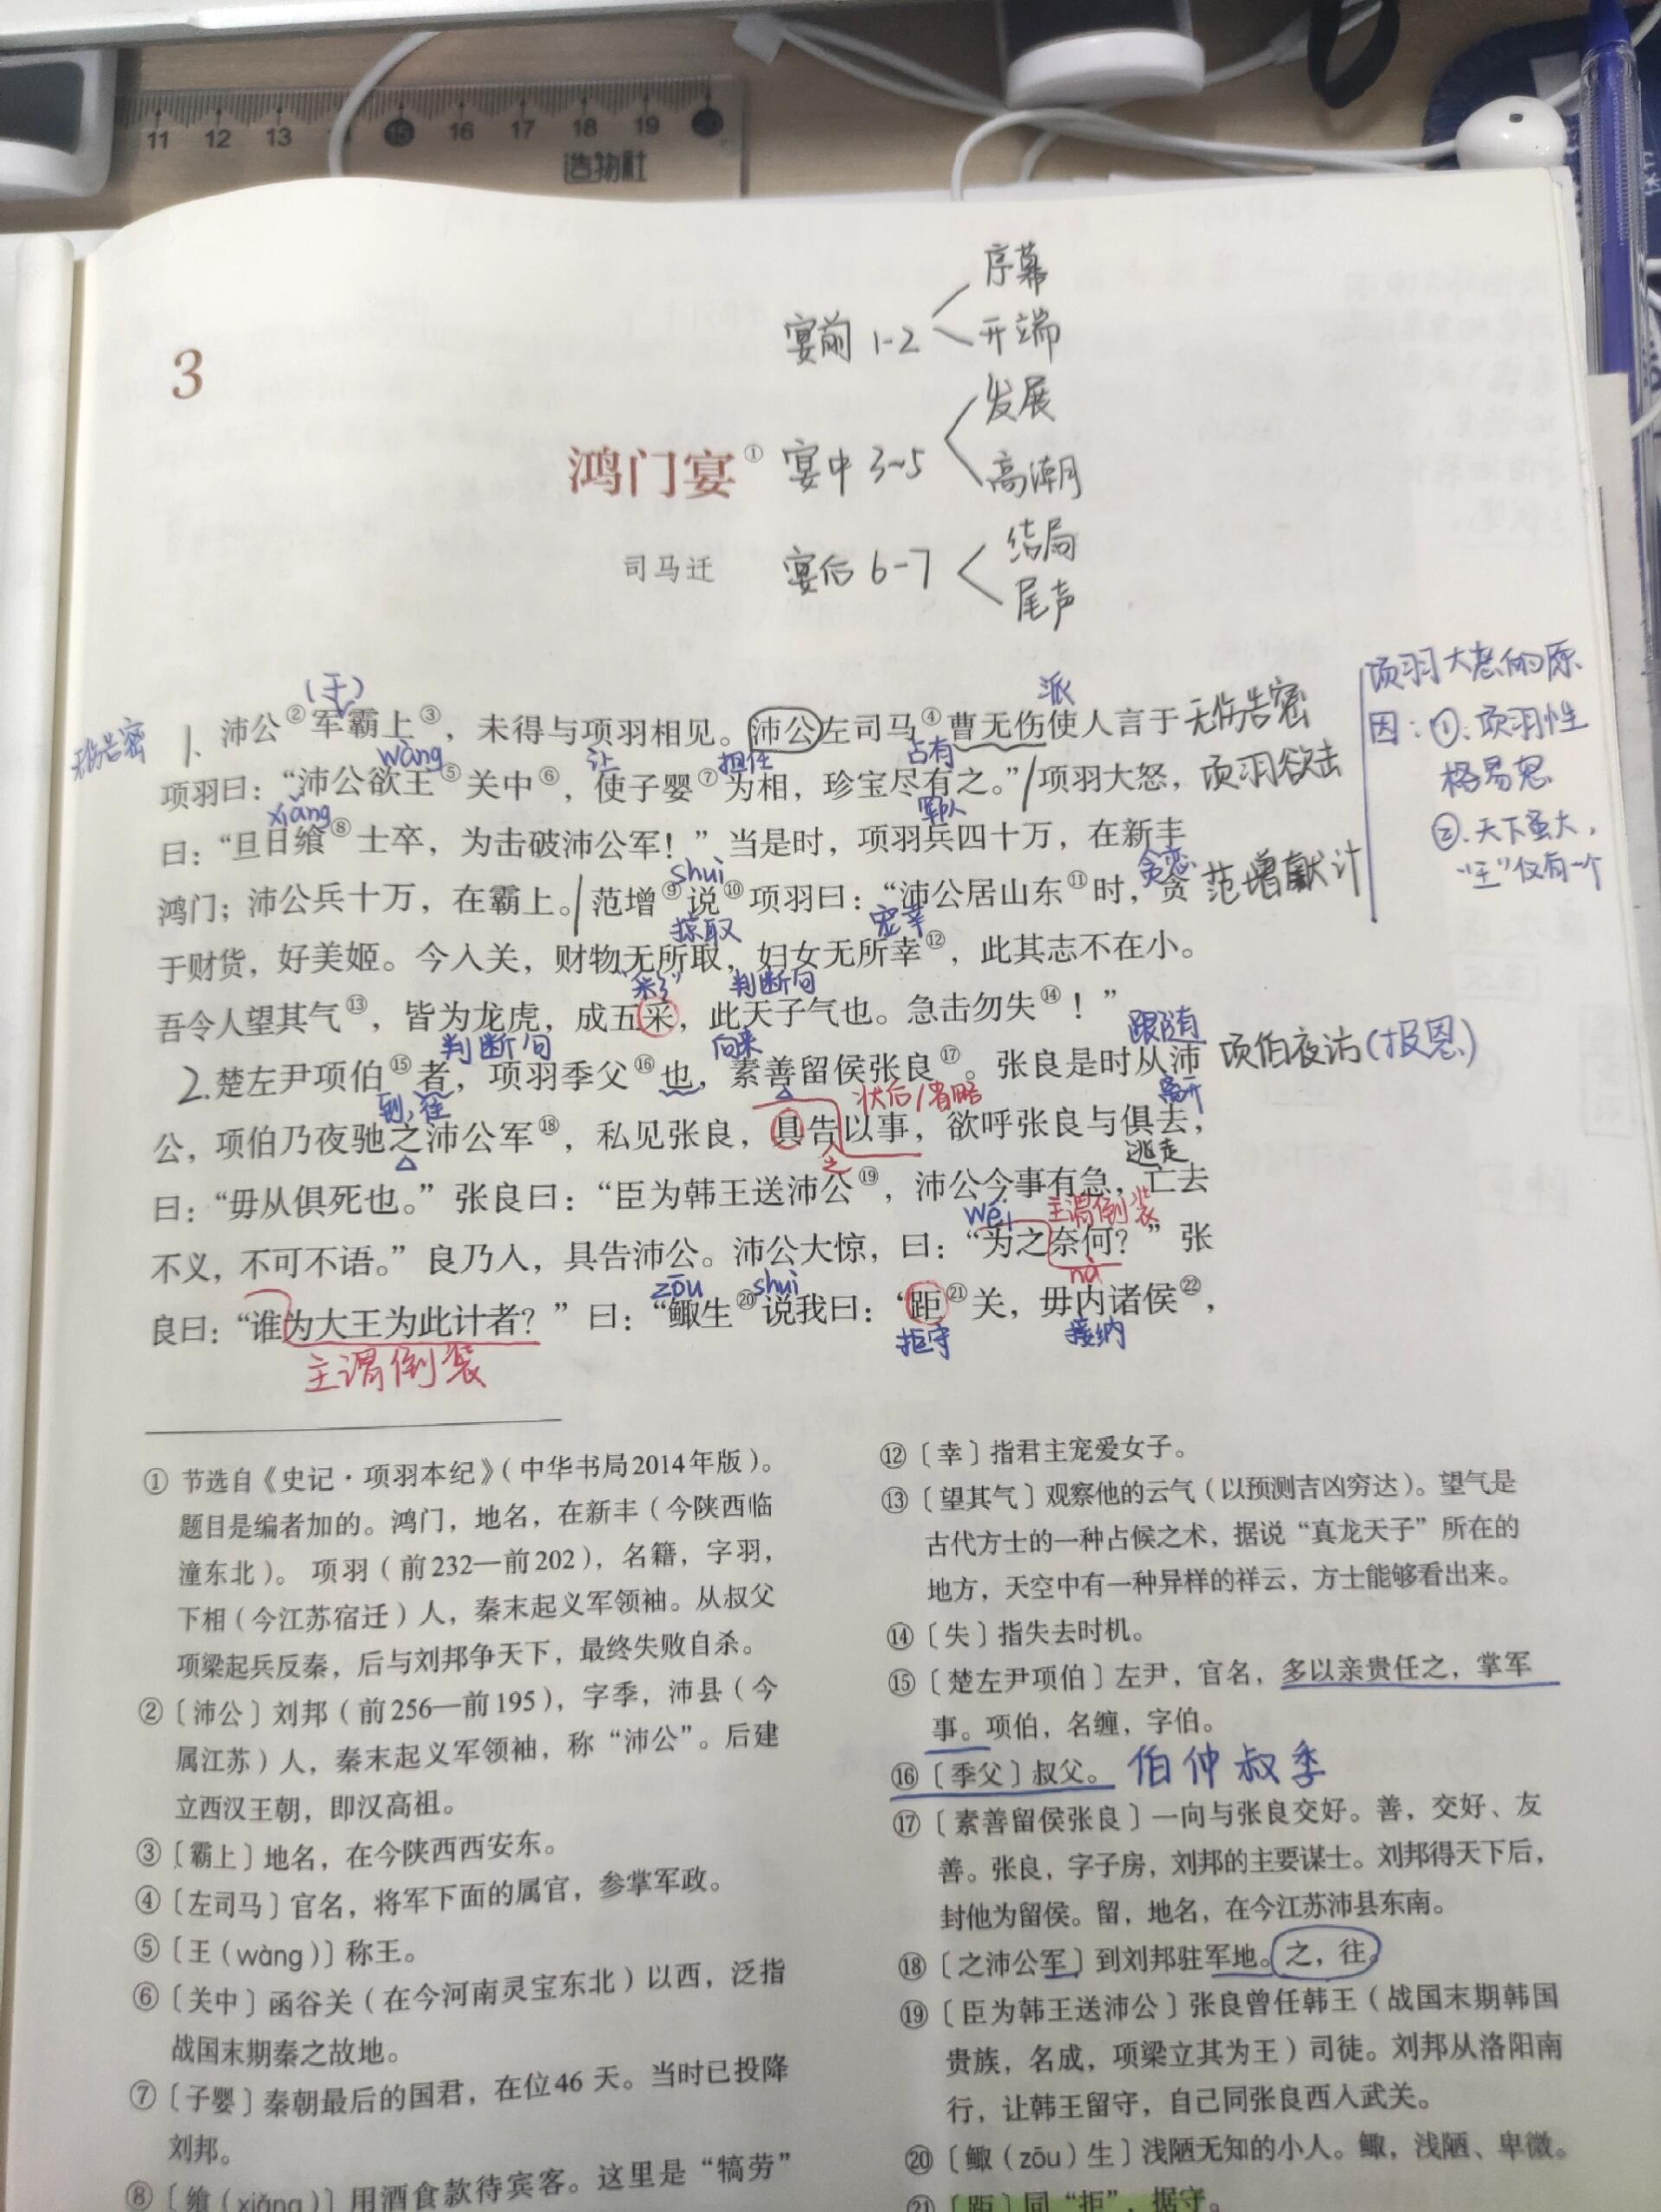 11 12 13 15 16 17 18 19
造物社
序幕
宴前 1-2
开端
3
发展
鸿门宴① 宴中 3~5
高潮
结局
司马迁 宴后 6-7
尾声
(于) 派
无伤告密
1、沛公②军霸上③，未得与项羽相见。沛公左司马④曹无伤使人言于 无伤告密
wàng 让 担任 占有
项羽曰：“沛公欲王⑤关中⑥，使子婴⑦为相，珍宝尽有之。”项羽大怒， 项羽欲击
xiǎng 军队
曰：“旦日飨⑧士卒，为击破沛公军！”当是时，项羽兵四十万，在新丰
shuì 贪恋
鸿门；沛公兵十万，在霸上。范增⑨说⑩项羽曰：“沛公居山东⑪时，贪 范增献计
掠取 宠幸
于财货，好美姬。今入关，财物无所取，妇女无所幸⑫，此其志不在小。
“彩” 判断句
吾令人望其气⑬，皆为龙虎，成五采，此天子气也。急击勿失⑭！”
判断句 向来 跟随
2.楚左尹项伯⑮者，项羽季父⑯也，素善留侯张良⑰。张良是时从沛 项伯夜访(报恩)
到,往 状后/省略 离开
公，项伯乃夜驰之沛公军⑱，私见张良，具告以事，欲呼张良与俱去，
之 逃走
曰：“毋从俱死也。”张良曰：“臣为韩王送沛公⑲，沛公今事有急，亡去
wéi 主谓倒装
不义，不可不语。”良乃入，具告沛公。沛公大惊，曰：“为之奈何？”张
zōu shuì nà
良曰：“谁为大王为此计者？”曰：“鲰生⑳说我曰：‘距㉑关，毋内诸侯㉒，
主谓倒装 拒守 接纳
项羽大怒的原
因：①：项羽性
格易怒
②.天下虽大，
“王”仅有一个
① 节选自《史记·项羽本纪》（中华书局2014年版）。
题目是编者加的。鸿门，地名，在新丰（今陕西临
潼东北）。项羽（前232—前202），名籍，字羽，
下相（今江苏宿迁）人，秦末起义军领袖。从叔父
项梁起兵反秦，后与刘邦争天下，最终失败自杀。
②〔沛公〕刘邦（前256—前195），字季，沛县（今
属江苏）人，秦末起义军领袖，称“沛公”。后建
立西汉王朝，即汉高祖。
③〔霸上〕地名，在今陕西西安东。
④〔左司马〕官名，将军下面的属官，参掌军政。
⑤〔王（wàng）〕称王。
⑥〔关中〕函谷关（在今河南灵宝东北）以西，泛指
战国末期秦之故地。
⑦〔子婴〕秦朝最后的国君，在位46天。当时已投降
刘邦。
⑧〔飨（xiǎng）〕用酒食款待宾客。这里是“犒劳”
⑫〔幸〕指君主宠爱女子。
⑬〔望其气〕观察他的云气（以预测吉凶穷达）。望气是
古代方士的一种占候之术，据说“真龙天子”所在的
地方，天空中有一种异样的祥云，方士能够看出来。
⑭〔失〕指失去时机。
⑮〔楚左尹项伯〕左尹，官名，多以亲贵任之，掌军
事。项伯，名缠，字伯。
⑯〔季父〕叔父。 伯仲叔季
⑰〔素善留侯张良〕一向与张良交好。善，交好、友
善。张良，字子房，刘邦的主要谋士。刘邦得天下后，
封他为留侯。留，地名，在今江苏沛县东南。
⑱〔之沛公军〕到刘邦驻军地。之，往。
⑲〔臣为韩王送沛公〕张良曾任韩王（战国末期韩国
贵族，名成，项梁立其为王）司徒。刘邦从洛阳南
行，让韩王留守，自己同张良西入武关。
⑳〔鲰（zōu）生〕浅陋无知的小人。鲰，浅陋、卑微。
㉑〔距〕同“拒”，据守。